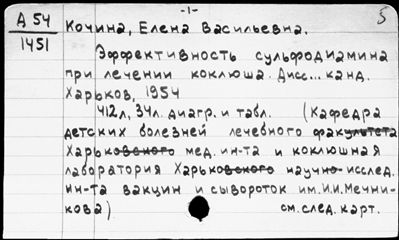 -1-
5
А 54
1451
Кочина, Елена Васильевна.
Эффективность сульфодиамина
при лечении коклюша. Дисс... канд.
Харьков, 1954
412л, 34л. диагр. и табл. (Кафедра
детских болезней лечебного факультета
Харьковского мед. ин-та и коклюшная
лаборатория Харьковского научно-исслед.
ин-та вакцин и сывороток им. И.И. Мечни-
кова)
см. след. карт.